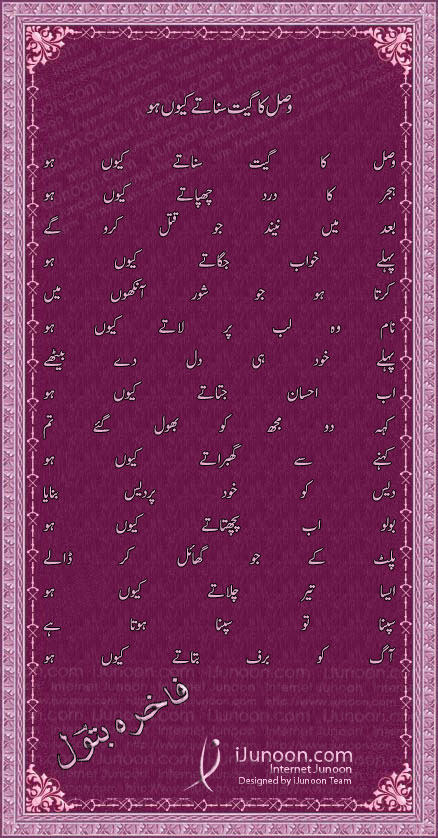 وصل کا گیت سناتے کیوں ہو
وصل کا گیت سناتے کیوں ہو
ہجر کا درد چھپاتے کیوں ہو
بعد میں نیند جو قتل کرو گے
پہلے خواب جگاتے کیوں ہو
کرتا ہو جو شور آنکھوں میں
نام وہ لب پر لاتے کیوں ہو
پہلے خود ہی دل دے بیٹھے
اب احسان جتاتے کیوں ہو
کہہ دو مجھ کو بھول گئے تم
کہنے سے گھبراتے کیوں ہو
دیس کو خود پردیس بنایا
بولو اب پچھتاتے کیوں ہو
پلٹ کے جو گھائل کر ڈالے
ایسا تیر چلاتے کیوں ہو
سپنا تو سپنا ہوتا ہے
آگ کو برف بتاتے کیوں ہو
فاخرہ بتول
iJunoon.com
Internet Junoon
Designed by iJunoon Team